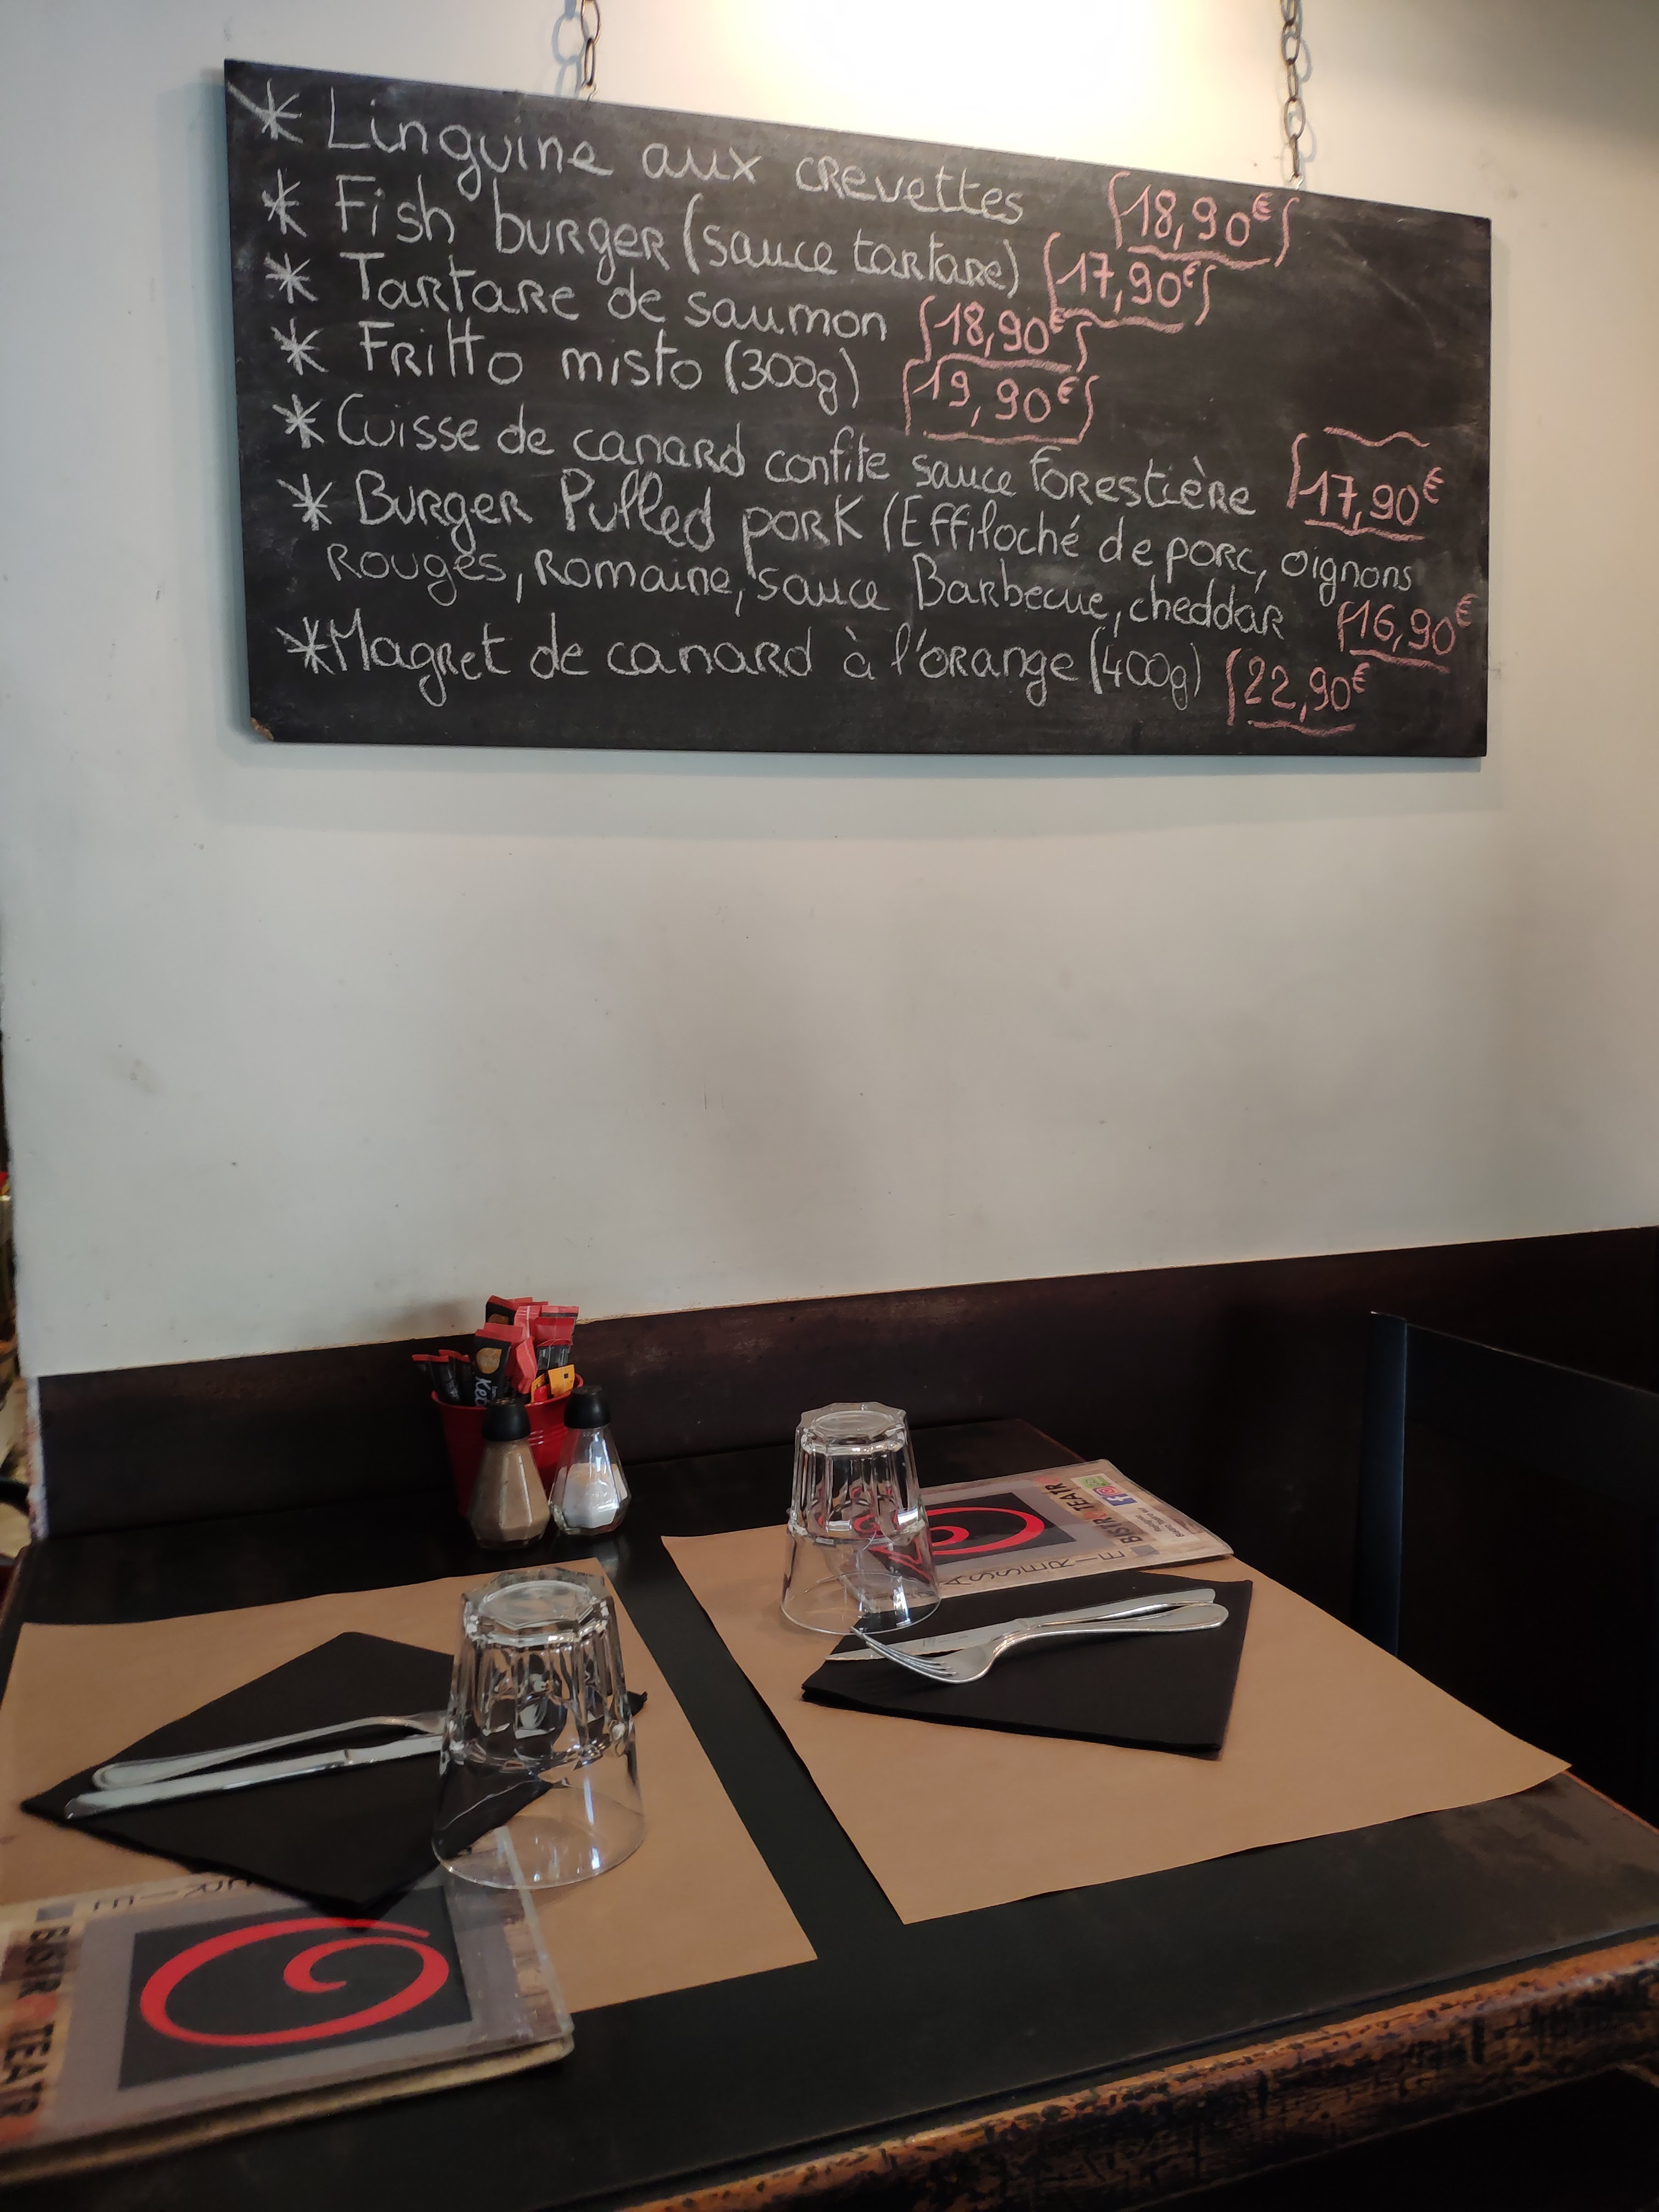 * Linguine aux crevettes 18,90€
* Fish burger (sauce tartare) 17,90€
* Tartare de saumon 18,90€
* Fritto misto (300g) 19,90€
* Cuisse de canard confite sauce Forestière 17,90€
* Burger Pulled pork (Effiloché de porc, oignons
rouges, Romaine, sauce Barbecue, cheddar 16,90€
* Magret de canard à l'orange (400g) 22,90€
ASSERIE
BISTR TEATR
BISTR TEATR